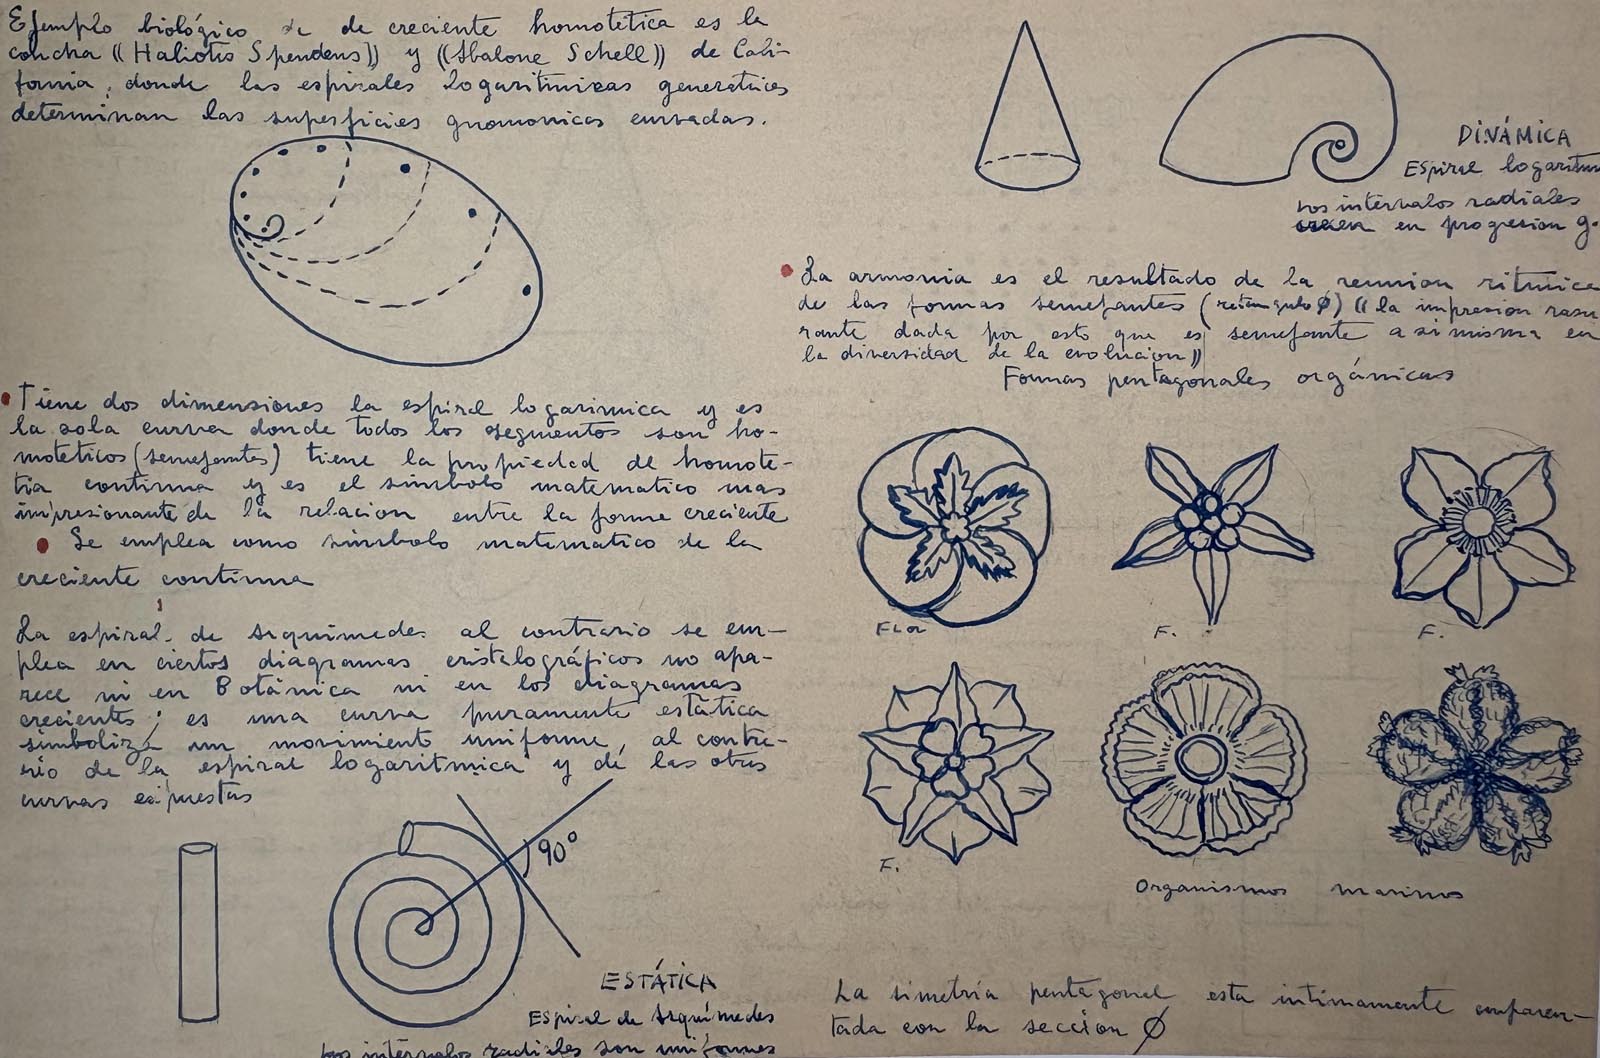 Ejemplo biológico de de creciente homotetica es la
concha ((Haliotis Spendens)) y ((Abalone Schell)) de Cali-
fornia, donde las espirales logaritmicas generatrices
determinan las superficies gnomonicas curvadas.
• Tiene dos dimensiones la espiral logarimica y es
la sola curva donde todos los segmentos son ho-
moteticos (semejantes) tiene la propiedad de homote-
tia continua y es el símbolo matematico mas
impresionante de la relacion entre la forma creciente
• Se emplea como símbolo matematico de la
creciente continua
La espiral de Arquímedes al contrario se em-
plea en ciertos diagramas cristalográficos no apa-
rece ni en Botánica ni en los diagramas
crecientes; es una curva puramente estática
simboliza un movimiento uniforme, al contra-
rio de la espiral logaritmica y de las otras
curvas expuestas
90°
ESTÁTICA
Espiral de Arquímedes
Los intérvalos radiales son uniformes
DINÁMICA
Espiral logaritm
Los intérvalos radiales
crecen en progresion g.
• La armonia es el resultado de la reunion ritmica
de las formas semejantes (rectangulo Ø) ((la impresion
rante dada por esto que es semejante a si misma en
la diversidad de la evolucion))
Formas pentagonales orgánicas
Flor
F.
F.
F.
Organismos marinos
La simetría pentagonal esta intimamente emparen-
tada con la seccion Ø